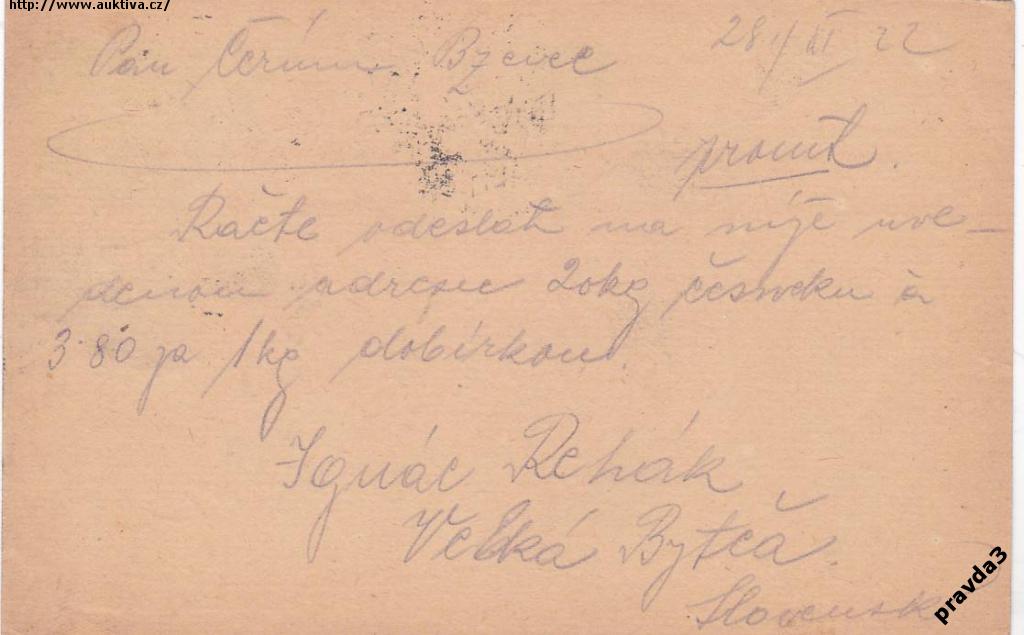 http://www.auktiva.cz/
28/XI 22
Pan Černín Bzenec
promt.
Račte odeslat na níže uve-
denou adresu 20kg česneku à
3.80 za 1kg dobírkou.
Ignác Rehák
Velká Bytča.
Slovensko
pravda3